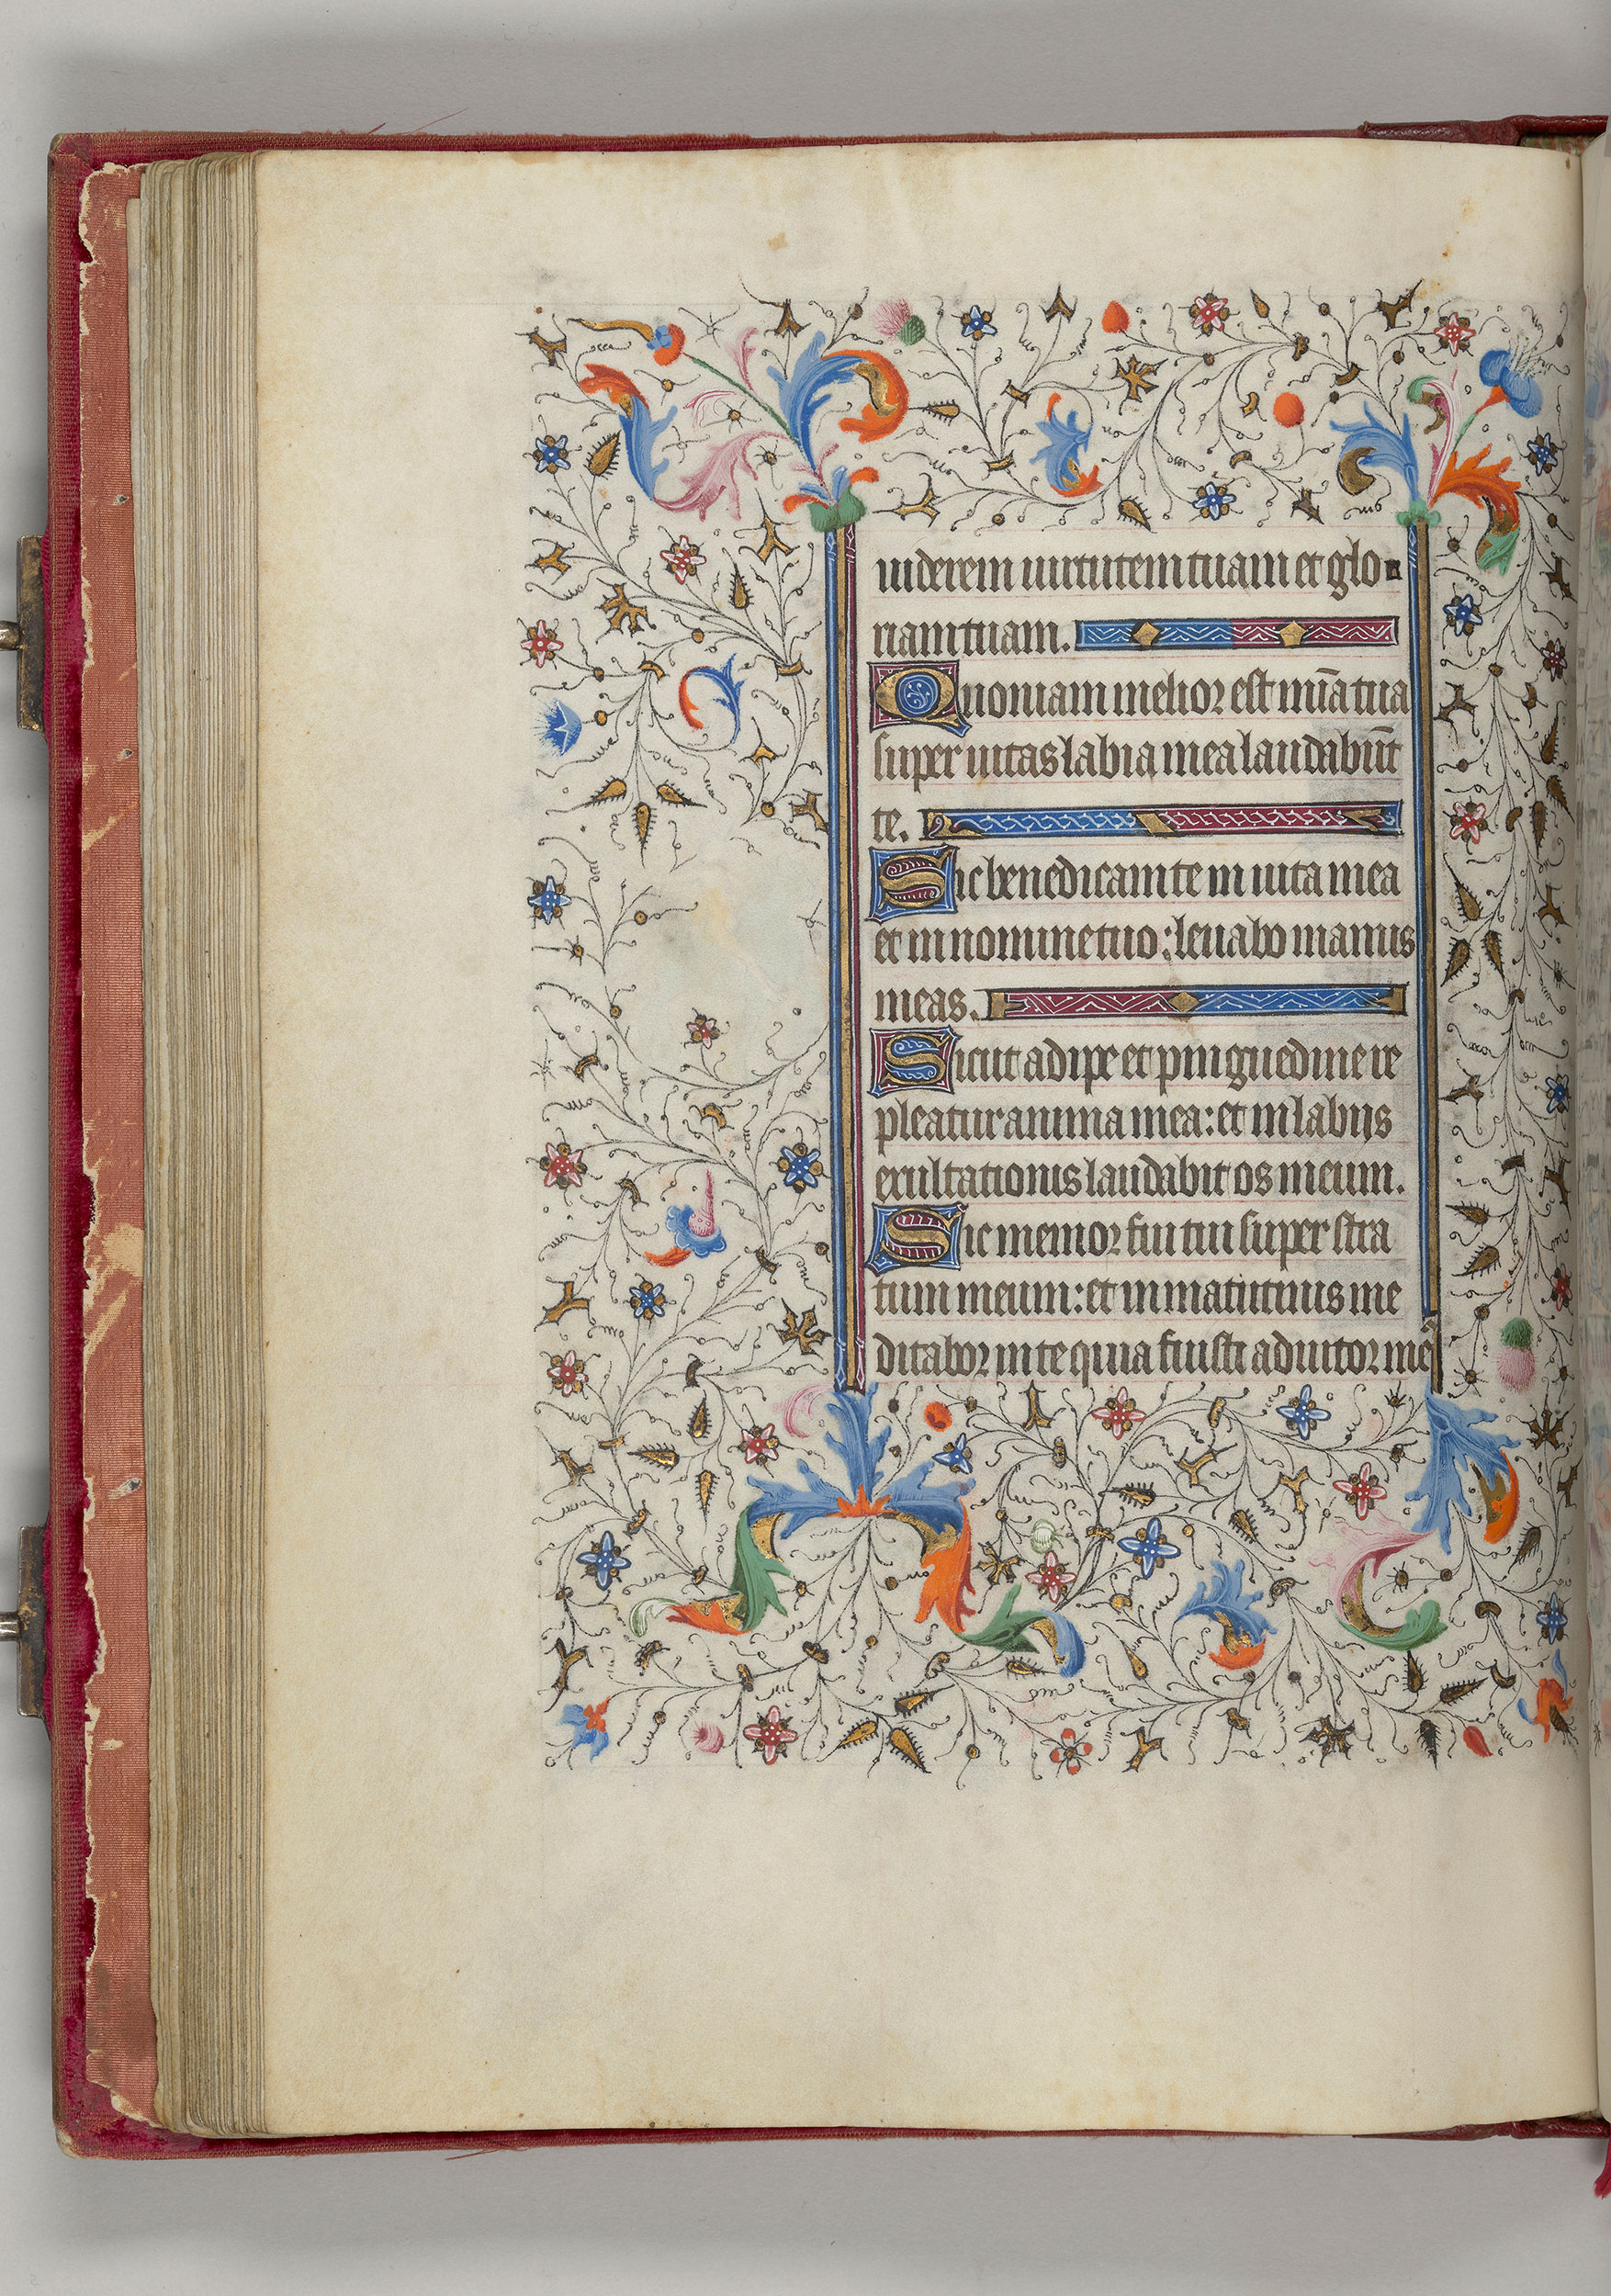 uiderem uirtutem tuam et glo
riam tuam.
Quoniam melior est mīa tua
super uitas labia mea laudabūt
te.
Sic benedicam te in uita mea
et in nomine tuo: leuabo manus
meas.
Sicut adipe et pinguedine re
pleatur anima mea: et in labiis
exultationis laudabit os meum.
Sic memor fui tui super stra
tum meum: et in matutinis me
ditabor in te quia fuisti adiutor me᷒